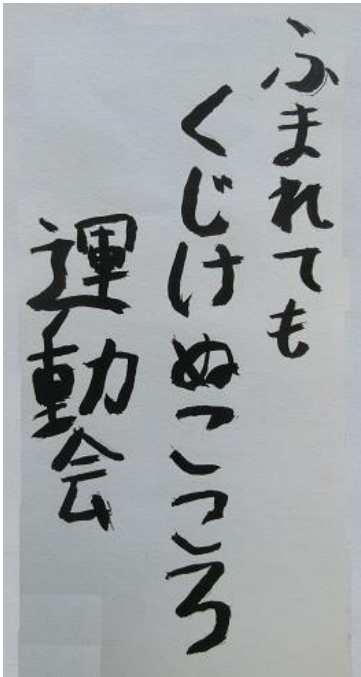 ふまれても
くじけぬこころ
運動会